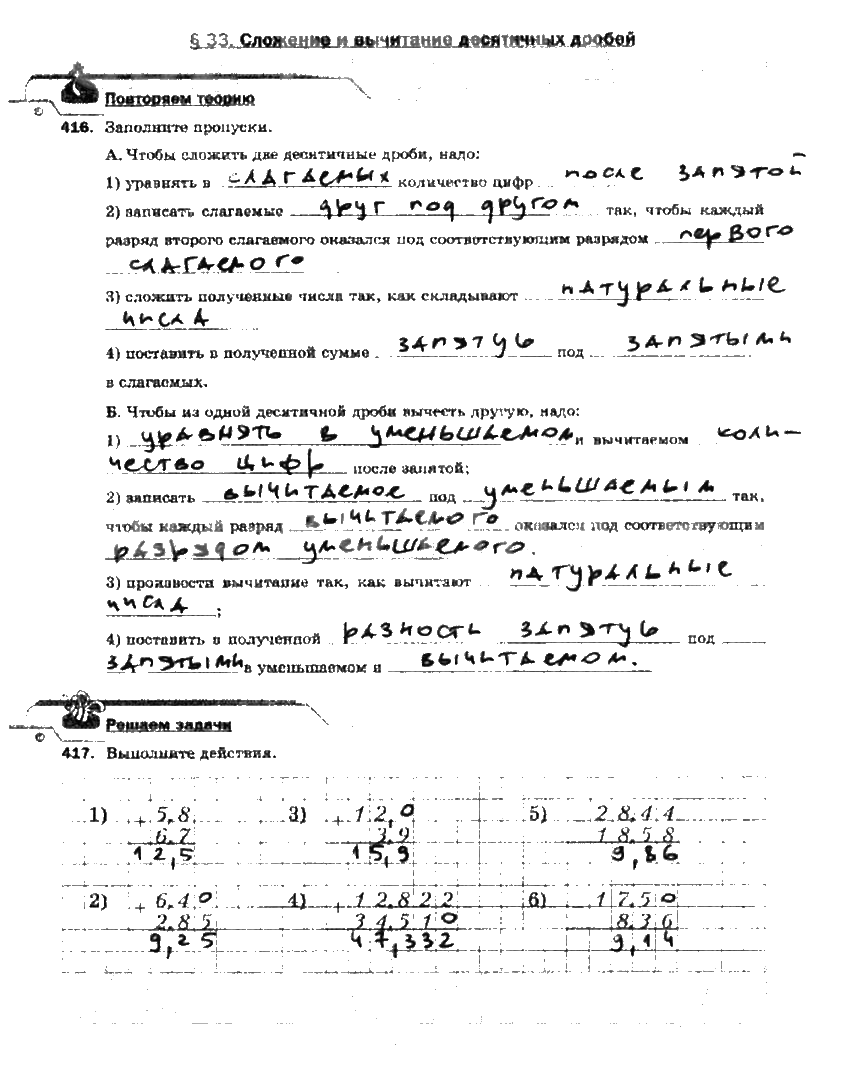 § 33. Сложение и вычитание десятичных дробей
Повторяем теорию
©
416. Заполните пропуски.
А. Чтобы сложить две десятичные дроби, надо:
1) уравнять в слагаемых количество цифр после запятой
2) записать слагаемые друг под другом так, чтобы каждый
разряд второго слагаемого оказался под соответствующим разрядом первого
слагаемого
3) сложить полученные числа так, как складывают натуральные
числа
4) поставить в полученной сумме запятую под запятыми
в слагаемых.
Б. Чтобы из одной десятичной дроби вычесть другую, надо:
1) уравнять в уменьшаемом и вычитаемом коли-
чество цифр после запятой;
2) записать вычитаемое под уменьшаемым так,
чтобы каждый разряд вычитаемого оказался под соответствующим
разрядом уменьшаемого.
3) произвести вычитание так, как вычитают натуральные
числа ;
4) поставить в полученной разность запятую под
запятыми в уменьшаемом и вычитаемом.
Решаем задачи
©
417. Выполните действия.
1) + 5,8 3) + 12,0 5) 28,44
6,7 3,9 18,58
12,5 15,9 9,86
2) + 6,40 4) + 12,822 6) 17,50
2,85 34,510 8,36
9,25 47,332 9,14